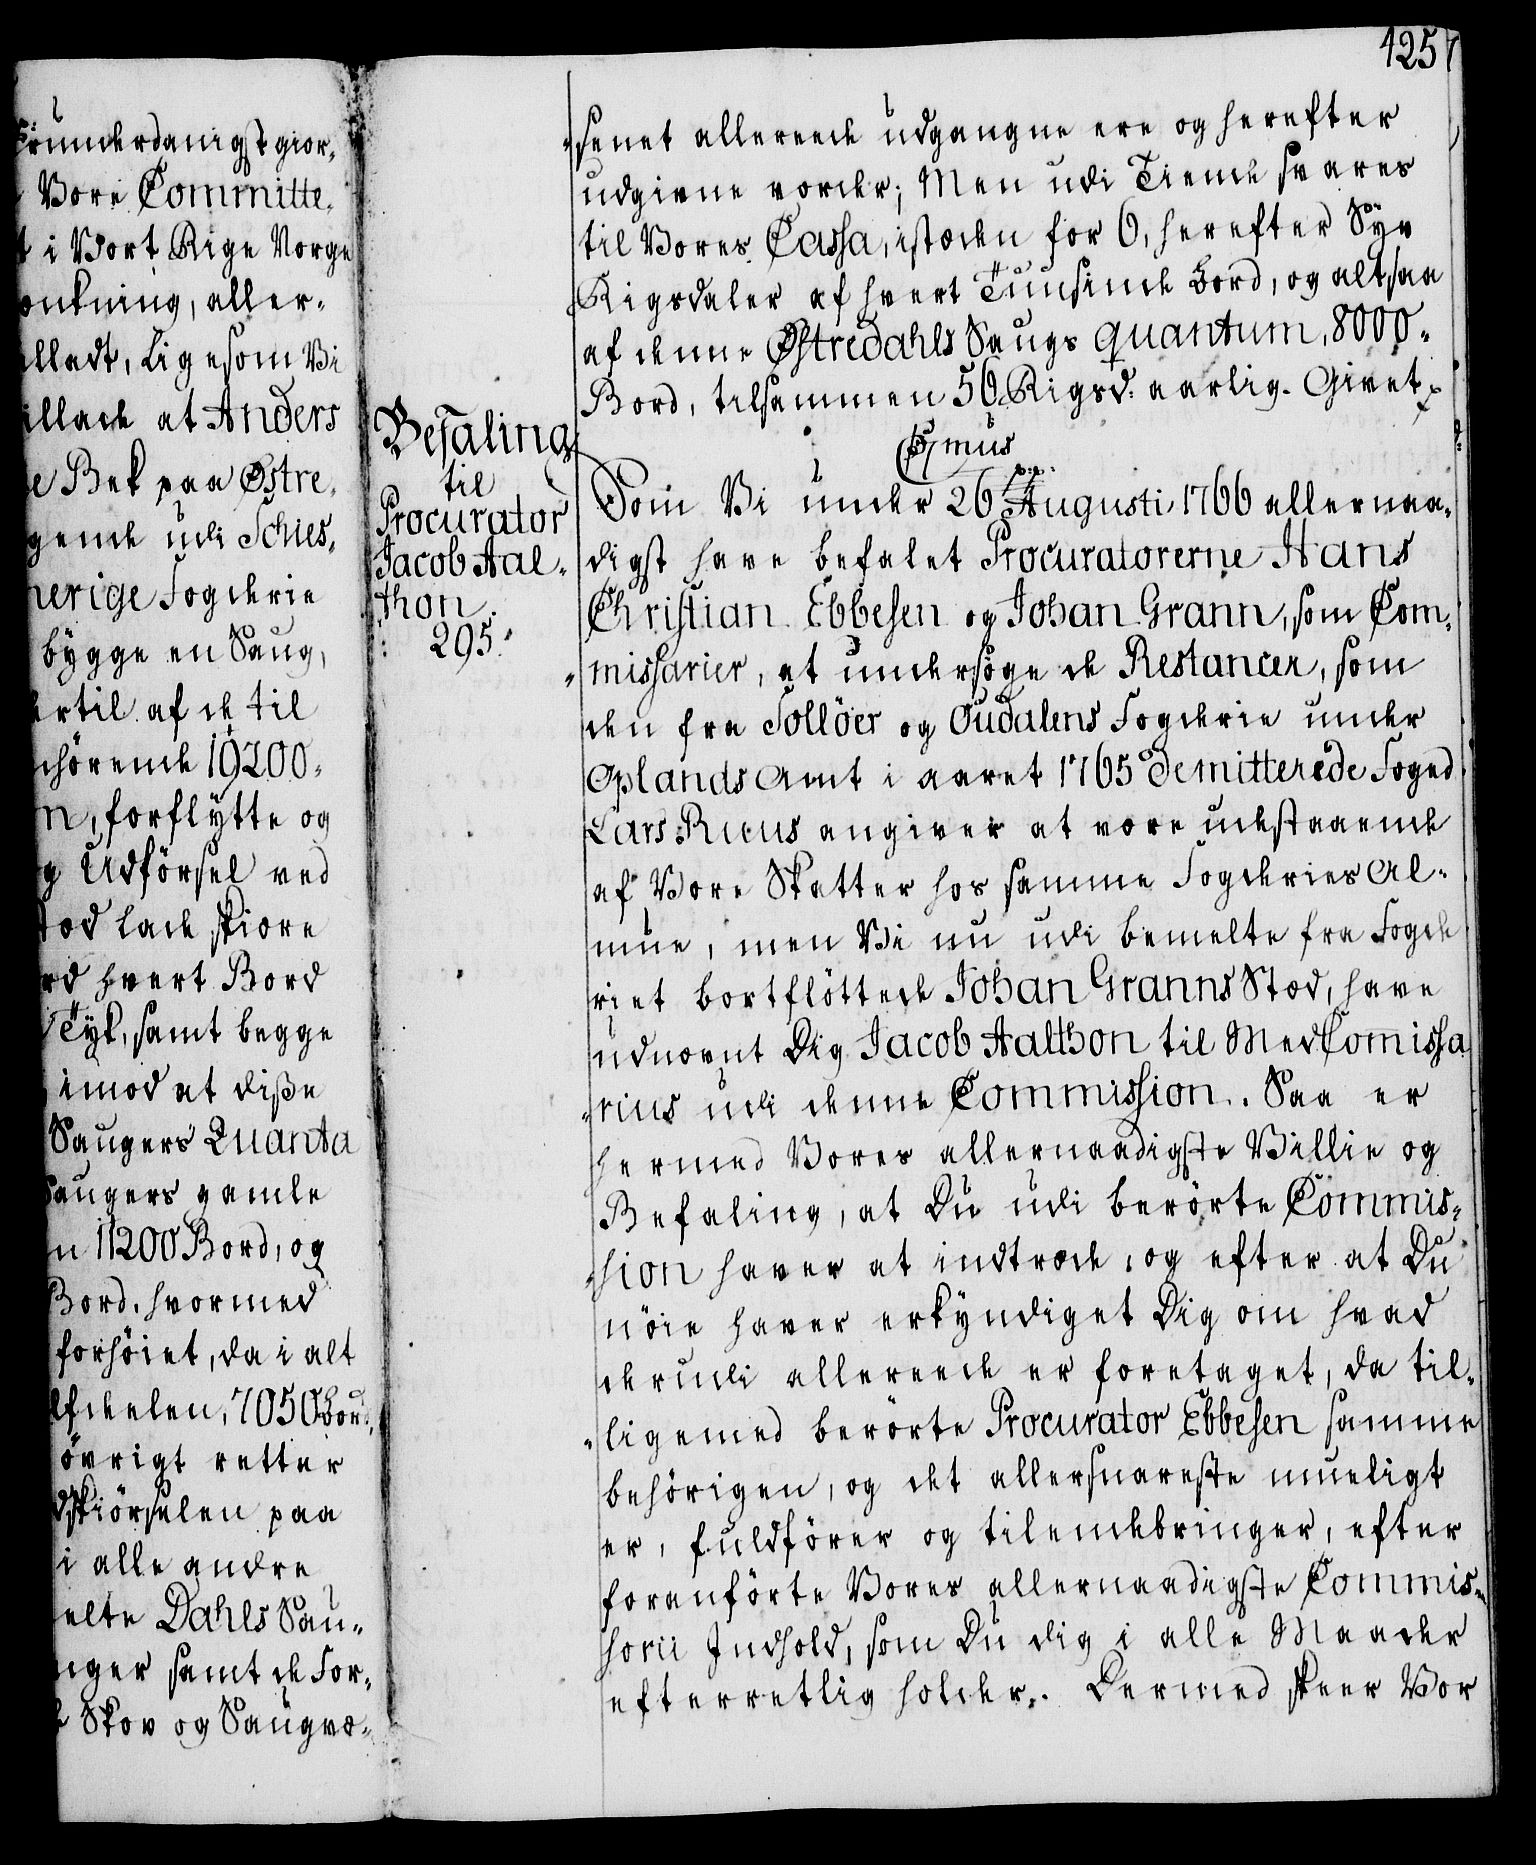 425
underdanigst gior„
Vore Committe„
i Vort Rige Norge
nkning, aller„
lladt, Ligesom Vi
illade at Anders
e Bek paa Østre„
gende udi Schies„
herige Fogderie
bygge en Saug,
ertil af de til
hörende 19200„
n, forflytte og
g Udförsel ved
lade skiöre
rd hvert Bord
Tyk, samt begge
imod at disse
Saugers Quanta
Saugers gamle
n 11200 Bord, og
Bord, hvormed
forhöiet, da i alt
delen, 7050 Bord,
övrigt retter
dskiörselen paa
i alle andre
elte Dahls Sau„
nger samt de For„
Skov og Saugvæ„
„senet allereede udgangne ere og herefter
udgivne vorder; Men udi Tiende svares
til Vores Cassa, istæden for 6, herefter Syv
Rigsdaler af hvert Tuusinde Bord, og altsaa
af denne Østredahls Saugs quantum, 8000„
Bord, tilsammen 56 Rigsd: aarlig. Givet
Befaling
til
Procurator
Jacob Aal„
thon.
295.
mus
Som Vi under 26 Augusti 1766 allernaa„
digst have befalet Procuratorerne Hans
Christian Ebbesen og Johan Grann, som Com„
„missarier, at undersöge de Restancer, som
den fra Sollöer og Oudalens Fogderie under
Oplands Amt i aaret 1765 demitterede Foged
Lars Ruus angiver at være udestaaende
af Vore Skatter hos samme Fogderies Al„
mue, men Vi nu udi bemelte fra Fogde
riet bortflöttede Johan Granns Stæd, have
udnævnt Dig Jacob Aalthon til Med Comissa
„rius udi denne Commission. Saa er
hermed Vores allernaadigste Villie og
Befaling, at Du udi berörte Commis„
„sion haver at indtræde, og efter at Du
nöie haver erkyndiget Dig om hvad
derudi allereede er foretaget, da til„
„ligemed berörte Procurator Ebbesen samme
behörigen, og det allersnareste mueligt
er, fuldförer og tilendebringer, efter
foranförte Vores allernaadigste Commis„
sorii Indhold, som Du dig i alle Maader
efterretlig holder. Dermed skeer Vor